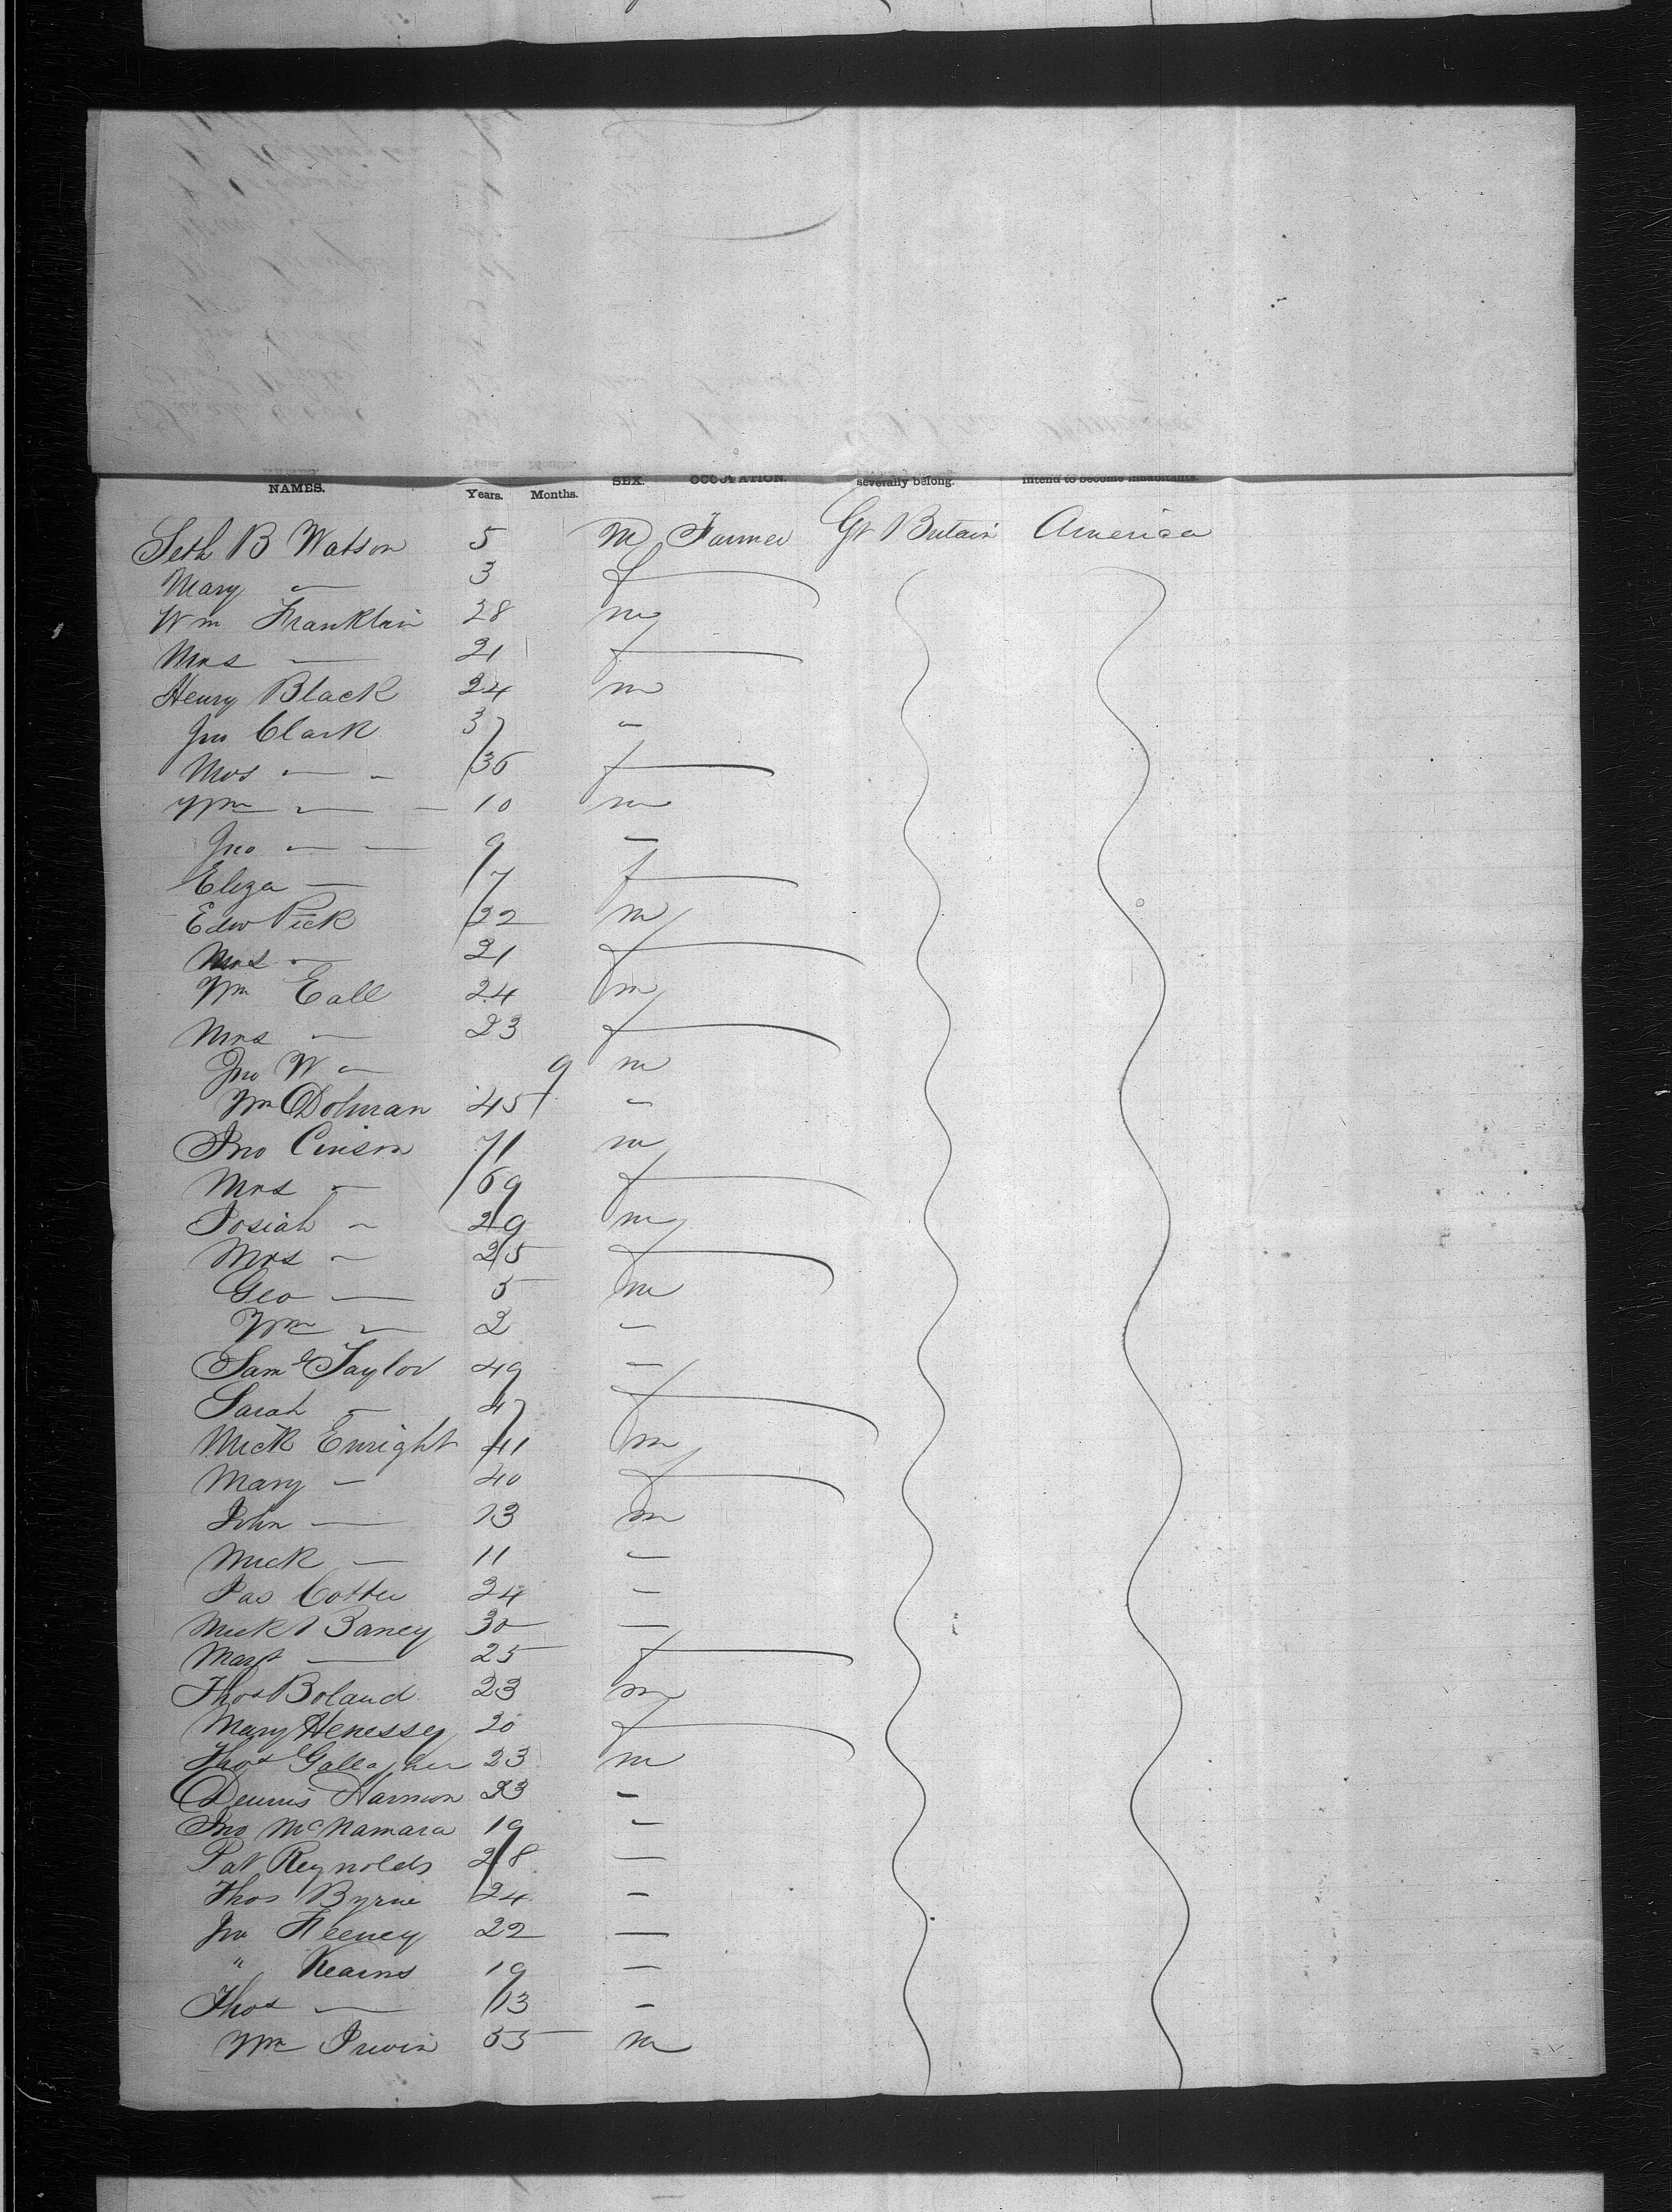 NAMES. Years. Months. SEX. OCCUPATION. severally belong. intend to become inhabitants.
Seth B Watson 5 M Farmer Gt Britain America
Mary — 3 f
Wm Franklin 28 m
Mrs — 21 f
Henry Black 24 m
Jno Clark 37 -
Mrs — - 36 f
Wm — - 10 m
Jno — — 9 —
Eliza — 7 f
Edw Pick 22 m
Mrs — 21 f
Wm Eall 24 m
Mrs — 23 f
Jno W — 9 m
Wm Dolman 45 -
Jno 71 m
Mrs — 69 f
Josiah — 29 m
Mrs — 25 f
Geo — 5 m
Wm — 2 —
Saml Taylor 49 —
Sarah — 47 f
Mick Enright 41 m
Mary — 40 f
John — 13 m
Mick — 11 —
Jas Cotter 24 —
Mick 30 —
Margt — 25 f
Thos Boland 23 m
Mary Henessey 20 f
Thos Gallagher 23 m
Dennis Harmon 23 -
Jno McNamara 19 —
Pat Reynolds 28 —
Thos Byrne 24 —
Jno Feeney 22 —
" Kearns 19 —
Thos — 13 -
Wm Irwin 55 m